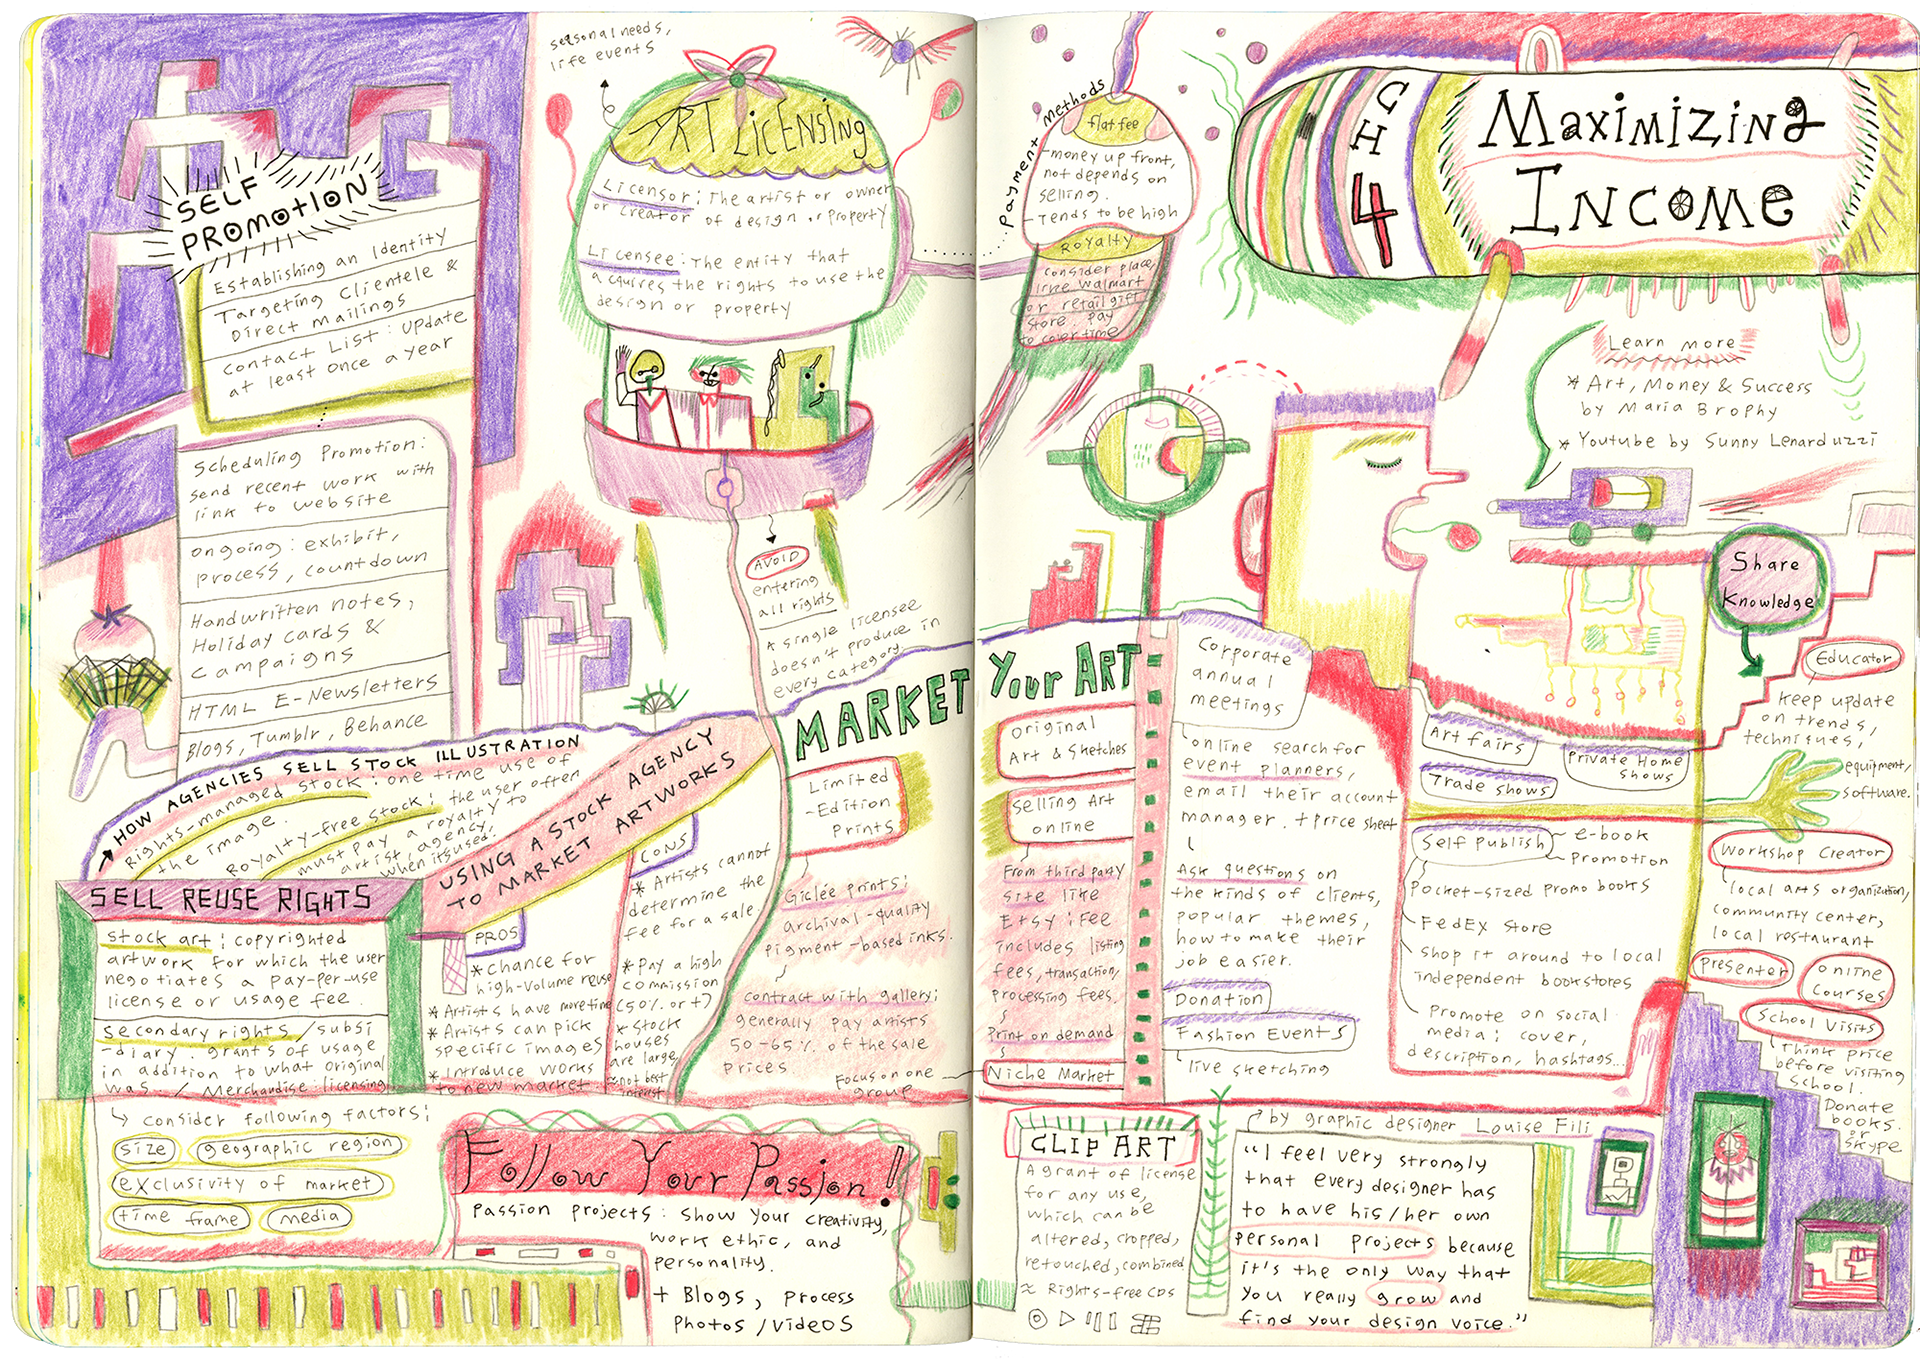 SELF
PROMOTION
Establishing an Identity
Targeting Clientele &
Direct Mailings
Contact List: Update
at least once a year
Scheduling Promotion:
send recent work with
link to website
ongoing: exhibit,
process, countdown
Handwritten notes,
Holiday cards &
campaigns
HTML E-Newsletters
Blogs, Tumblr, Behance
seasonal needs,
life events
ART LiCENSiNg
Licensor: The artist or owner
or creator of design or Property
Licensee: The entity that
acquires the rights to use the
design or property
AVOID
entering
all rights
* single licensee
doesn't produce in
every category
HOW AGENCIES SELL STOCK ILLUSTRATION
Rights-managed stock: one time use of
the image.
Royalty-free stock: the user often
must pay a royalty to
artist, agency
when it's used.
SELL REUSE RIGHTS
Stock art: copyrighted
artwork for which the user
negotiates a pay-per-use
license or usage fee.
Secondary rights/subsi
-diary. grants of usage
in addition to what original
was. / Merchandise: licensing
consider following factors:
size
geographic region
exclusivity of market
time frame
media
USING A STOCK AGENCY
TO MARKET ARTWORKS
PROS
* Chance for
high-volume reuse
* Artists have more time
* Artists can pick
specific images
* Introduce works
to new market
CONS
* Artists cannot
determine the
fee for a sale.
* Pay a high
commission
(50% or +)
* Stock
houses
are large,
not best
interest
Follow Your Passion!
Passion projects: show your creativity,
work ethic, and
personality.
+ Blogs, process
Photos/videos
MARKET Your ART
Limited
-Edition
Prints
Giclée prints:
archival-quality
pigment-based inks.
contract with gallery:
generally pay artists
50-65% of the sale
prices.
Focus on one
group
original
Art & Sketches
Selling Art
online
From third party
site like
Etsy: Fee
includes listing
fees, transaction,
processing fees.
Print on demand
Niche Market
payment methods
flat fee
-money up front,
not depends on
selling.
-Tends to be high
Royalty
consider place,
like Walmart
or retail gift
store. Pay
to cover time
CH
4
Maximizing
Income
Learn more
* Art, Money & Success
by Maria Brophy
* Youtube by Sunny Lenarduzzi
Corporate
annual
meetings
online search for
event planners,
email their account
manager. + price sheet
Ask questions on
the kinds of clients,
popular themes,
how to make their
job easier.
Donation
Fashion Events
live sketching
Art fairs
Private Home
Shows
Trade Shows
Self Publish
e-book
Promotion
pocket-sized promo books
FedEx Store
Shop it around to local
independent bookstores
Promote on social
media: cover,
description, hashtags...
Share
Knowledge
Educator
keep update
on trends,
techniques,
equipment,
software.
Workshop Creator
local arts organization,
community center,
local restaurant
presenter
online
courses
School Visits
Think price
before visiting
school.
Donate
books.
or
skype
CLIP ART
A grant of license
for any use,
which can be
altered, cropped,
retouched, combined
≈ Rights-free CDs
by graphic designer Louise Fili
"I feel very strongly
that every designer has
to have his/her own
personal projects because
it's the only way that
you really grow and
find your design voice."